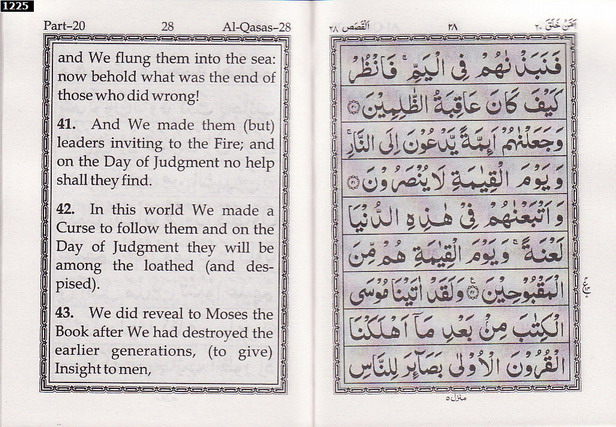 1225
Part-20 28 Al-Qasas-28
and We flung them into the sea:
now behold what was the end of
those who did wrong!
41. And We made them (but)
leaders inviting to the Fire; and
on the Day of Judgment no help
shall they find.
42. In this world We made a
Curse to follow them and on the
Day of Judgment they will be
among the loathed (and des-
pised).
43. We did reveal to Moses the
Book after We had destroyed the
earlier generations, (to give)
Insight to men,
اَمَّنْ خَلَقَ ٢٠ ٢٨ اَلْقَصَص ٢٨
فَنَبَذْنٰهُمْ فِى الْيَمِّ ۚ فَانْظُرْ
كَيْفَ كَانَ عَاقِبَةُ الظّٰلِمِيْنَ ۝
وَجَعَلْنٰهُمْ اَئِمَّةً يَّدْعُوْنَ اِلَى النَّارِ ۚ
وَيَوْمَ الْقِيٰمَةِ لَا يُنْصَرُوْنَ ۝
وَاَتْبَعْنٰهُمْ فِىْ هٰذِهِ الدُّنْيَا
لَعْنَةً ۚ وَيَوْمَ الْقِيٰمَةِ هُمْ مِّنَ
الْمَقْبُوْحِيْنَ ۝ وَلَقَدْ اٰتَيْنَا مُوْسَى
الْكِتٰبَ مِنْۢ بَعْدِ مَآ اَهْلَكْنَا
الْقُرُوْنَ الْاُوْلٰى بَصَآئِرَ لِلنَّاسِ
منزل ٥